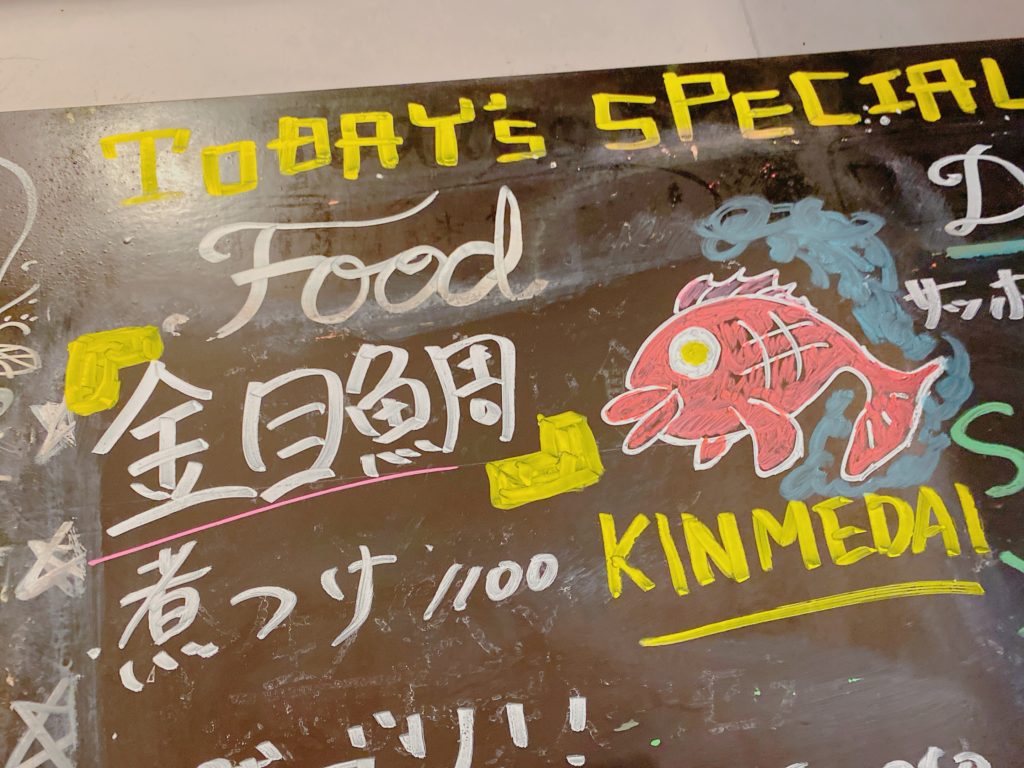 TODAY's SPECIAL
Food
「金目鯛」
煮つけ 1100
KINMEDAI
D
サッポ
S